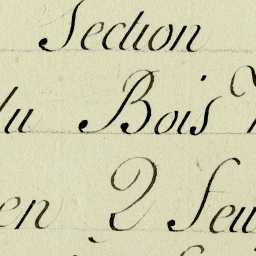 Section
du Bois
en 2 feu